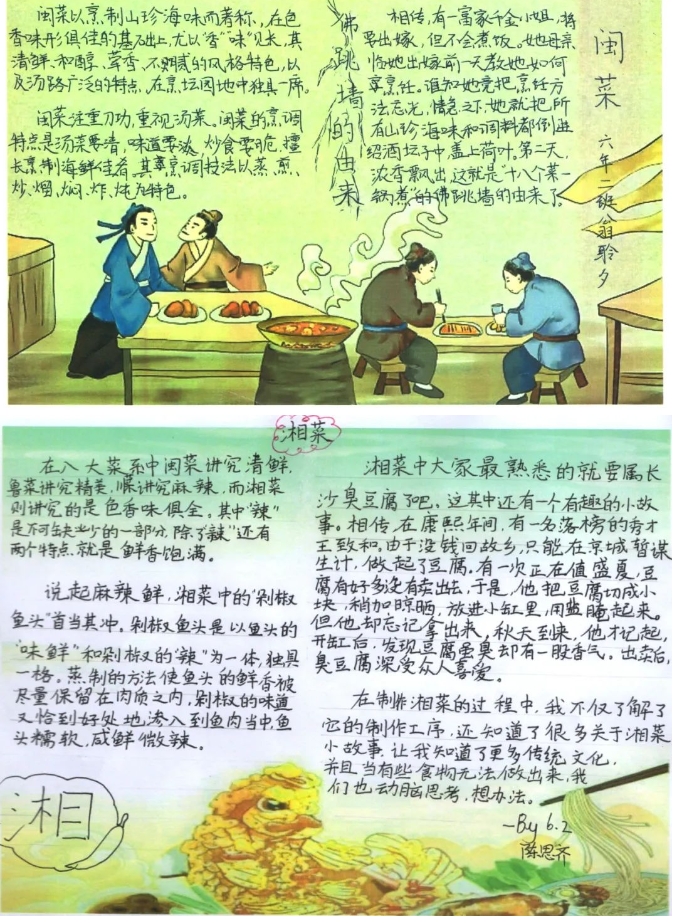 闽菜以烹制山珍海味而著称,在色
香味形俱佳的基础上,尤以"香""味"见长,其
清鲜、和醇、荤香、不腻的风格特色,以
及汤路广泛的特点,在烹坛园地中独具一席。
闽菜注重刀功,重视汤菜。闽菜的烹调
特点是汤菜要清,味道要淡,炒食要脆,擅
长烹制海鲜佳肴,其烹调技法以蒸、煎、
炒、熘、焖、炸、炖为特色。
佛跳墙的由来
相传,有一富家千金小姐,将
要出嫁,但不会煮饭。她母亲
临她出嫁前一天教她如何
烹饪。谁知她竟把烹饪方
法忘光,情急之下,她就把所
有山珍海味和调料都倒进
绍酒坛子中盖上荷叶。第二天,
浓香飘出,这就是"十八个菜一
锅煮"的佛跳墙的由来了
闽菜
六年二班翁聆夕
湘菜
在八大菜系中闽菜讲究清鲜,
鲁菜讲究精美,川菜讲究麻辣,而湘菜
则讲究的是色香味俱全。其中"辣"
是不可缺少的一部分,除了"辣"还有
两个特点就是鲜香饱满。
说起麻辣鲜,湘菜中的"剁椒
鱼头"首当其冲。剁椒鱼头是以鱼头的
"味鲜"和剁椒的"辣"为一体,独具
一格。蒸制的方法使鱼头的鲜香被
尽量保留在肉质之内,剁椒的味道
又恰到好处地渗入到鱼肉当中,鱼
头糯软,咸鲜微辣。
湘
湘菜中大家最熟悉的就要属长
沙臭豆腐了吧,这其中还有一个有趣的小故
事。相传,在康熙年间,有一名落榜的秀才
王致和。由于没钱回故乡,只能在京城暂谋
生计,做起了豆腐。有一次正在值盛夏,豆
腐有好多没有卖出去,于是,他把豆腐切成小
块,稍加晾晒,放进小缸里,用盐腌起来。
但他却忘记拿出来,秋天到来,他才记起,
开缸后,发现豆腐虽臭却有一股香气。出卖后,
臭豆腐深受众人喜爱。
在制作湘菜的过程中,我不仅了解了
它的制作工序,还知道了很多关于湘菜
小故事,让我知道了更多传统文化,
并且当有些食物无法做出来,我
们也动脑思考,想办法。
~By 6.2
陈思齐